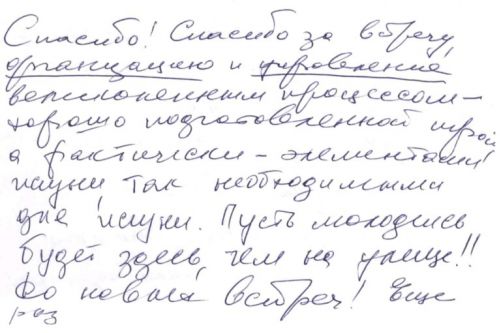 Спасибо! Спасибо за встречу,
организацию и управление
великолепным процессом –
хорошо подготовленной игрой
а фактически – элементами
жизни, так необходимыми
для жизни. Пусть молодежь
будет здесь, чем на улице!!
До новых встреч! Еще
раз